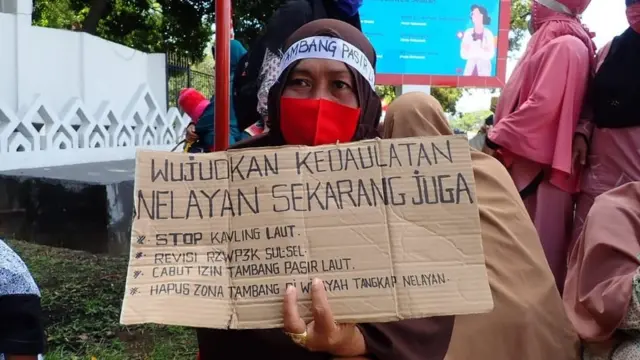 TAMBANG PASIR LAUT
WUJUDKAN KEDAULATAN
NELAYAN SEKARANG JUGA
* STOP KAVLING LAUT.
* REVISI RZWP3K SULSEL.
* CABUT IZIN TAMBANG PASIR LAUT.
* HAPUS ZONA TAMBANG DI WILAYAH TANGKAP NELAYAN.